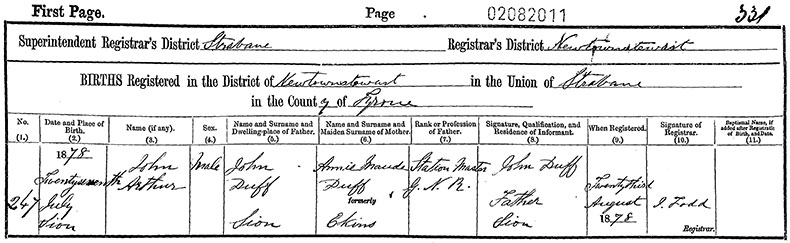 First Page. Page 02082011 331
Superintendent Registrar's District Strabane Registrar's District Newtownstewart
BIRTHS Registered in the District of Newtownstewart in the Union of Strabane
in the County of Tyrone
No. (1.) Date and Place of Birth. (2.) Name (if any). (3.) Sex. (4.) Name and Surname and Dwelling-place of Father. (5.) Name and Surname and Maiden Surname of Mother. (6.) Rank or Profession of Father. (7.) Signature, Qualification, and Residence of Informant. (8.) When Registered. (9.) Signature of Registrar. (10.) Baptismal Name, if added after Registration of Birth, and Date. (11.)
247
1878
Twentyseventh
July
Sion
John
Arthur
Male
John
Duff
Sion
Annie Maude
Duff
formerly
Ekins
Station Master
G. N. R.
John Duff
Father
Sion
Twentythird
August
1878
J. Todd
Registrar.